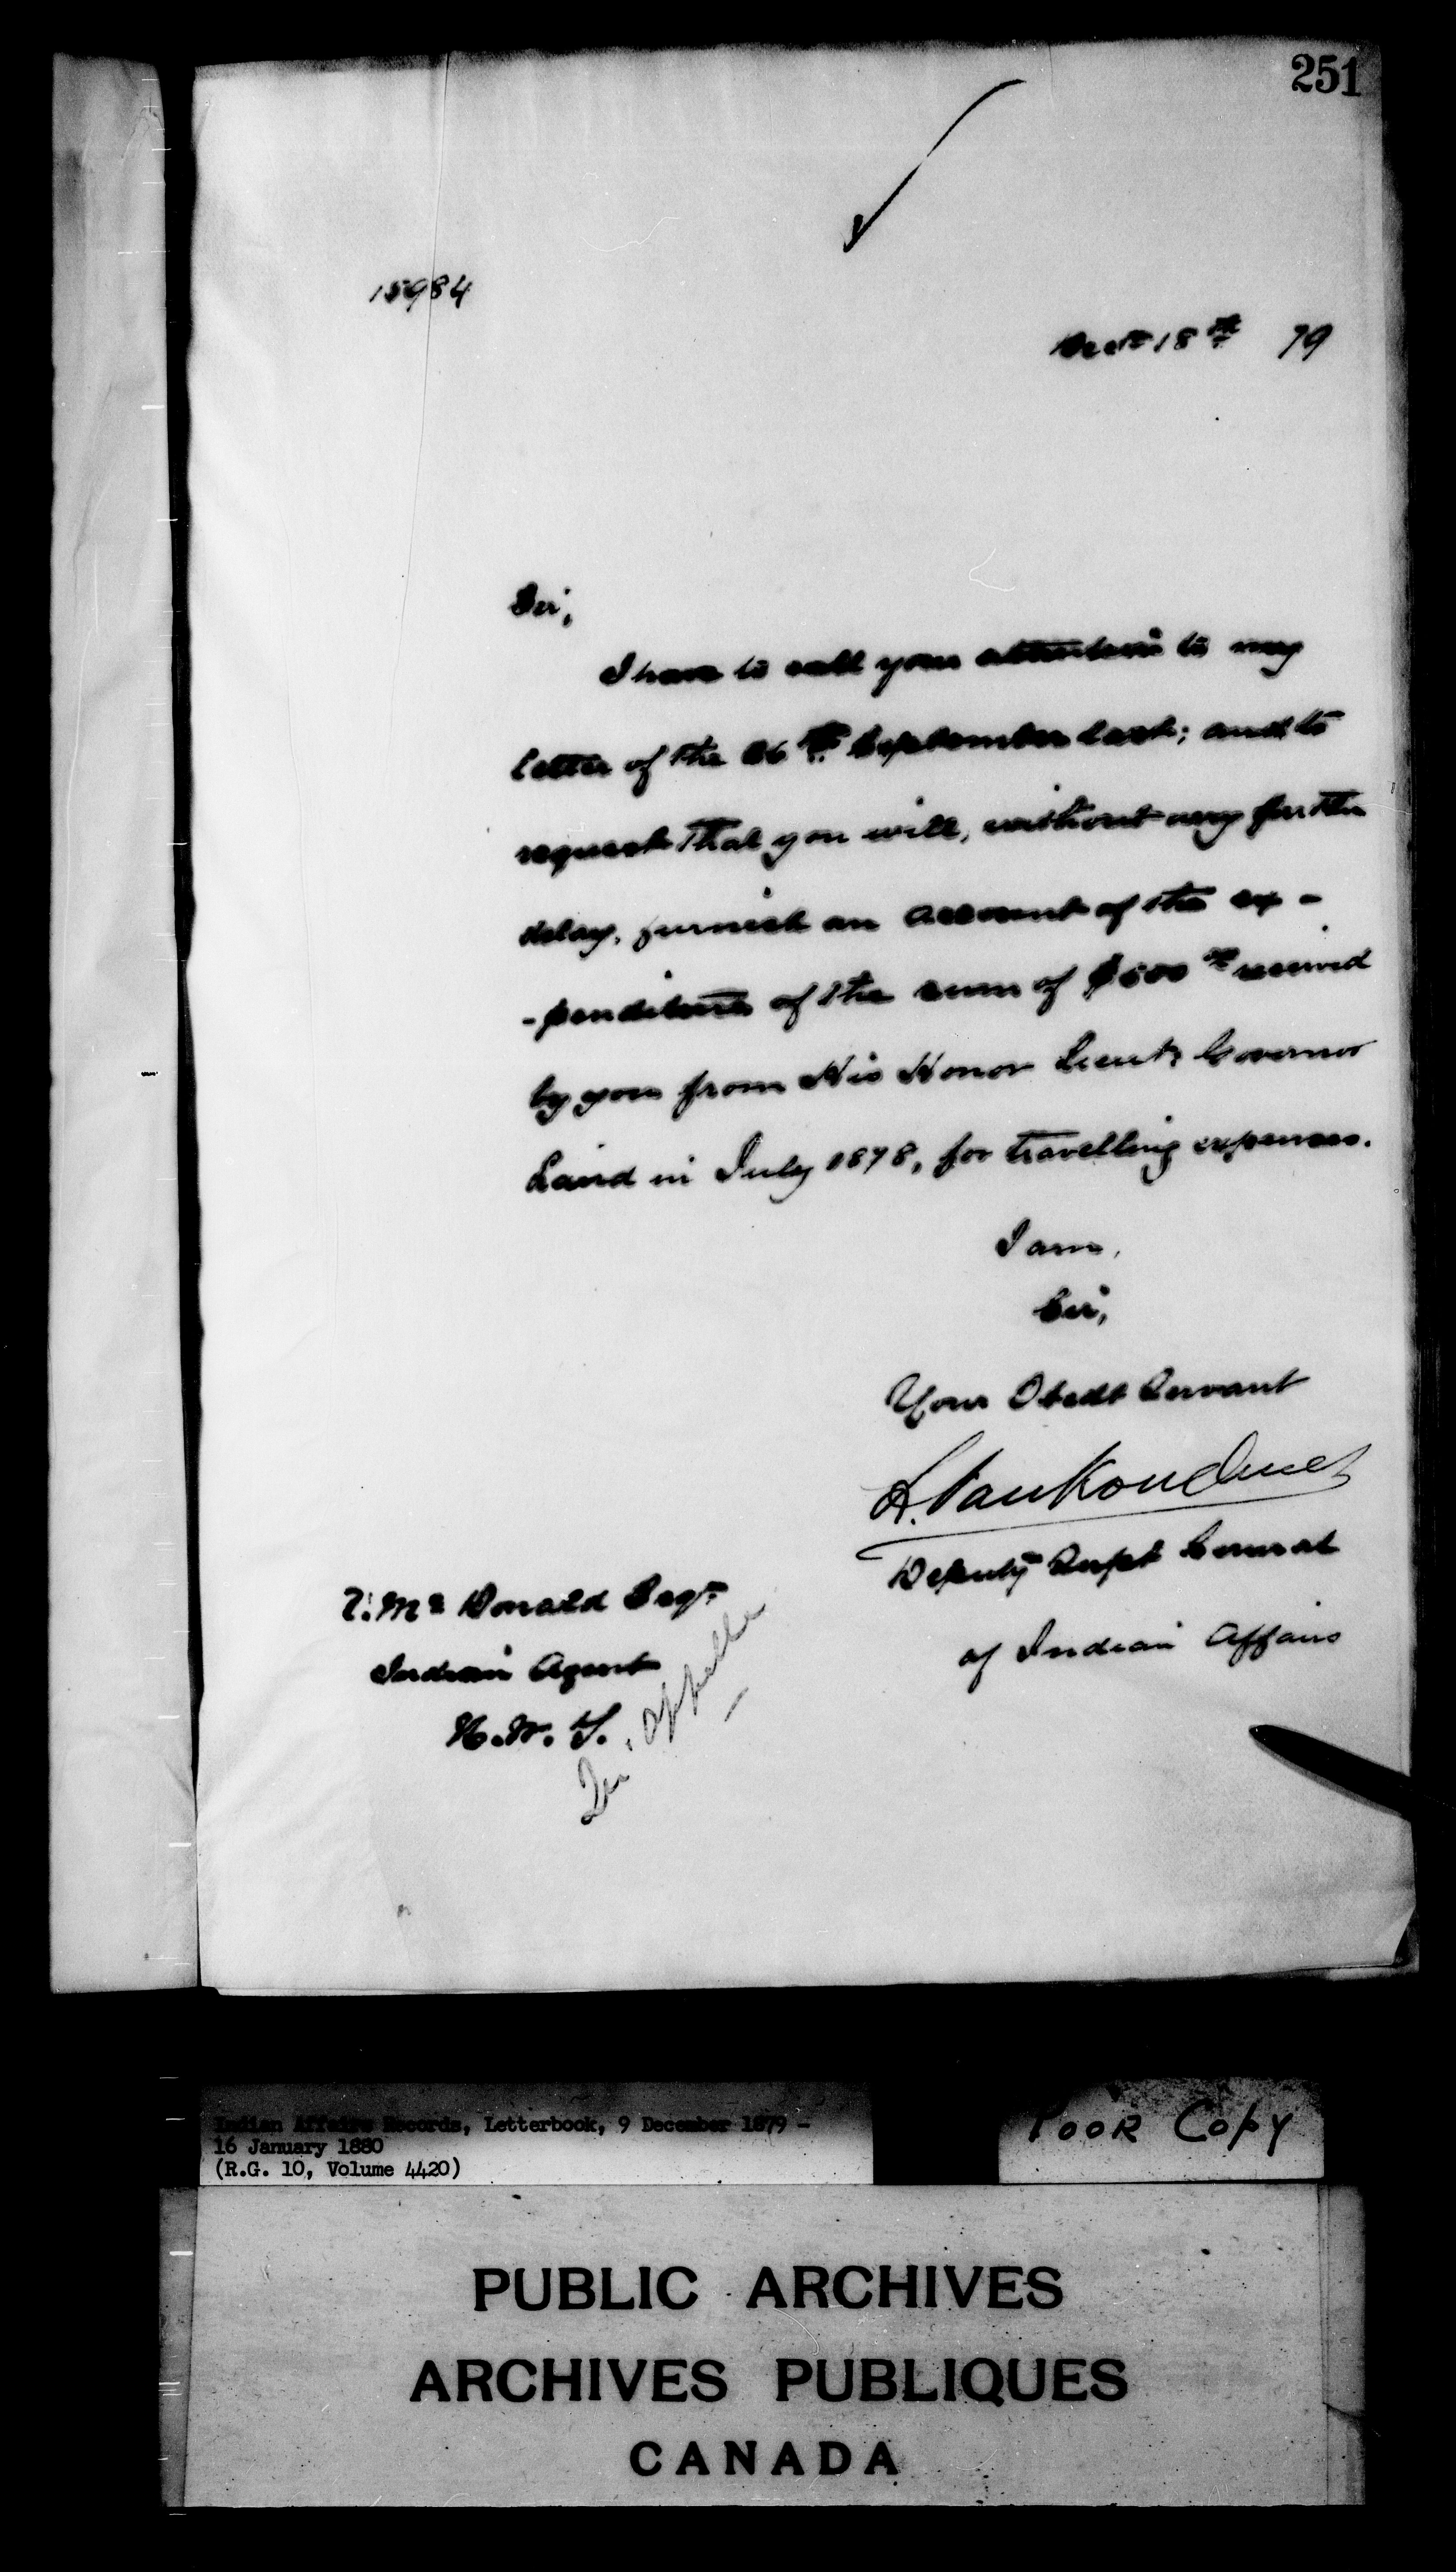 251
15984
Decr 18th 79
Sir,
I have to call your attention to my
letter of the 26th September last; and to
request that you will, without any further
delay, furnish an account of the ex-
-penditure of the sum of $500 00 received
by you from His Honor Lieut. Governor
Laird in July 1878, for travelling expenses.
I am,
Sir,
Your Obedt Servant
L. VanKoughnet
Deputy Supt General
of Indian Affairs
Mc Donald Esqr
Indian Agent
N.W.T.
Qu'Appelle
Indian Affairs Records, Letterbook, 9 December 1879 -
16 January 1880
(R.G. 10, Volume 4420)
Poor Copy
PUBLIC ARCHIVES
ARCHIVES PUBLIQUES
CANADA